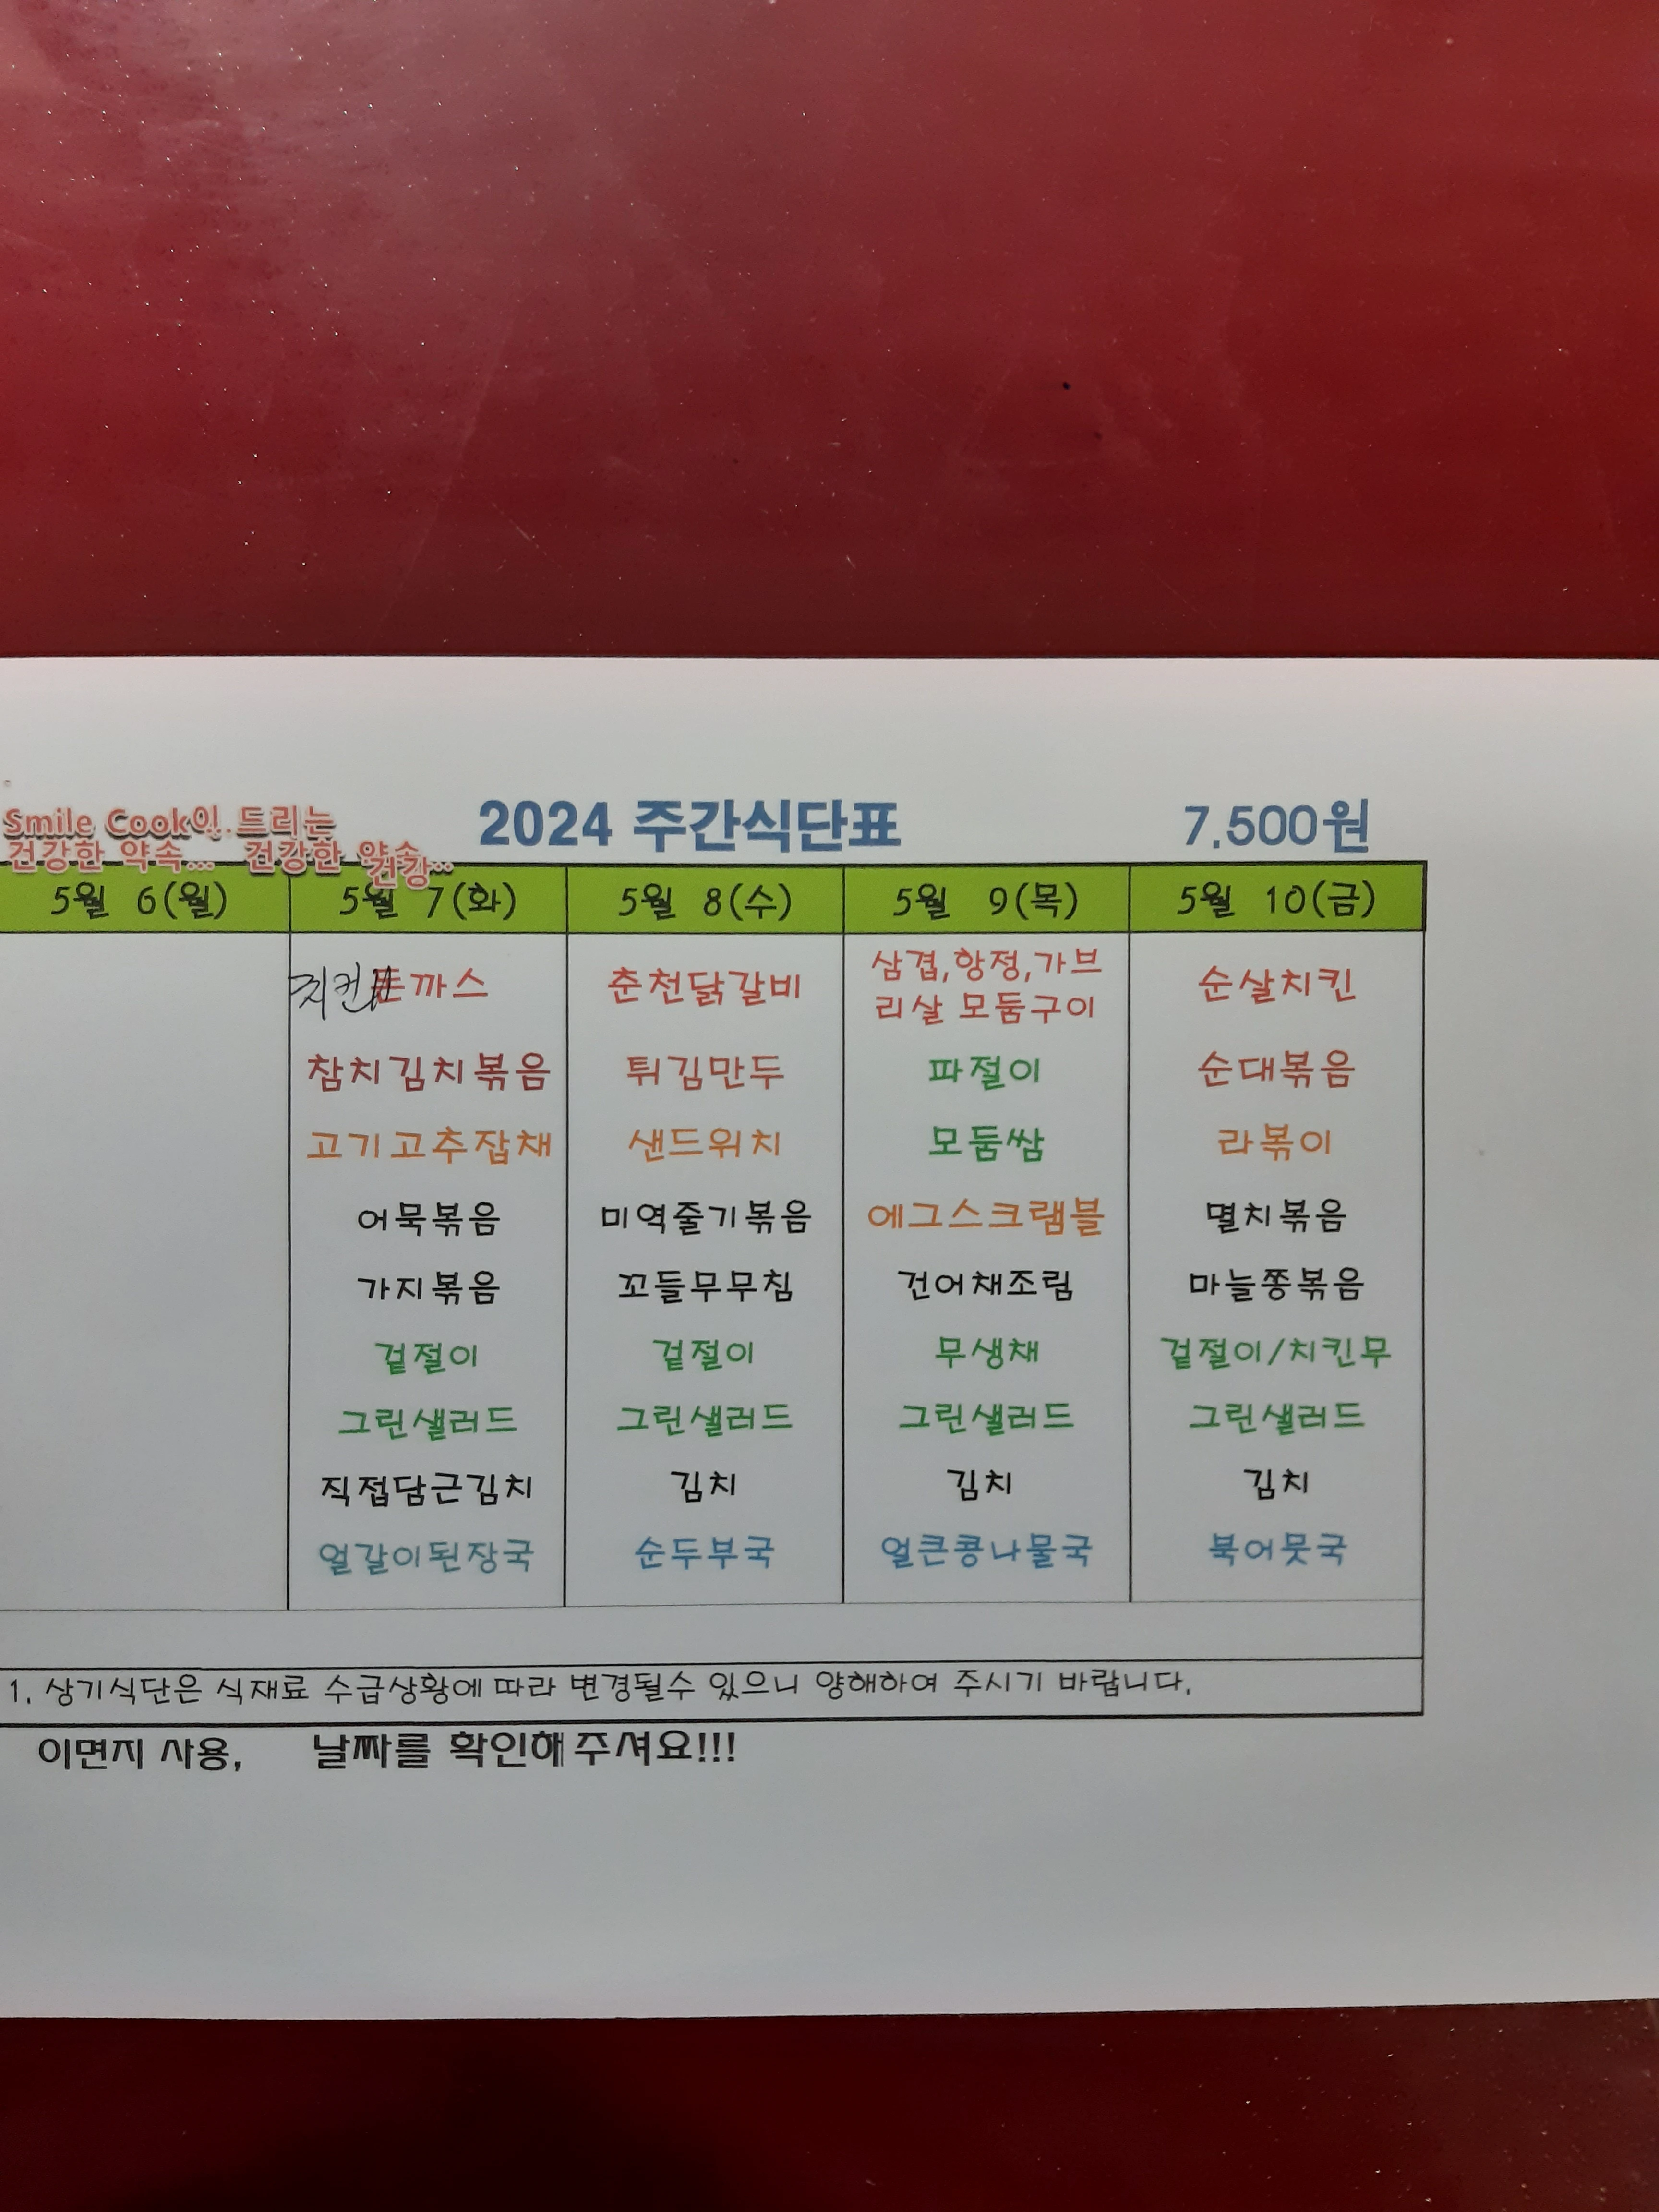 Smile Cook이 드리는
건강한 약속... 건강한 약속...
건강
2024 주간식단표 7,500원
5월 6(월) 5월 7(화) 5월 8(수) 5월 9(목) 5월 10(금)
치킨까스 춘천닭갈비 삼겹,항정,가브 순살치킨
리살 모둠구이
참치김치볶음 튀김만두 파절이 순대볶음
고기고추잡채 샌드위치 모둠쌈 라볶이
어묵볶음 미역줄기볶음 에그스크램블 멸치볶음
가지볶음 꼬들무무침 건어채조림 마늘쫑볶음
겉절이 겉절이 무생채 겉절이/치킨무
그린샐러드 그린샐러드 그린샐러드 그린샐러드
직접담근김치 김치 김치 김치
얼갈이된장국 순두부국 얼큰콩나물국 북어뭇국
1. 상기식단은 식재료 수급상황에 따라 변경될수 있으니 양해하여 주시기 바랍니다.
이면지 사용, 날짜를 확인해주셔요!!!